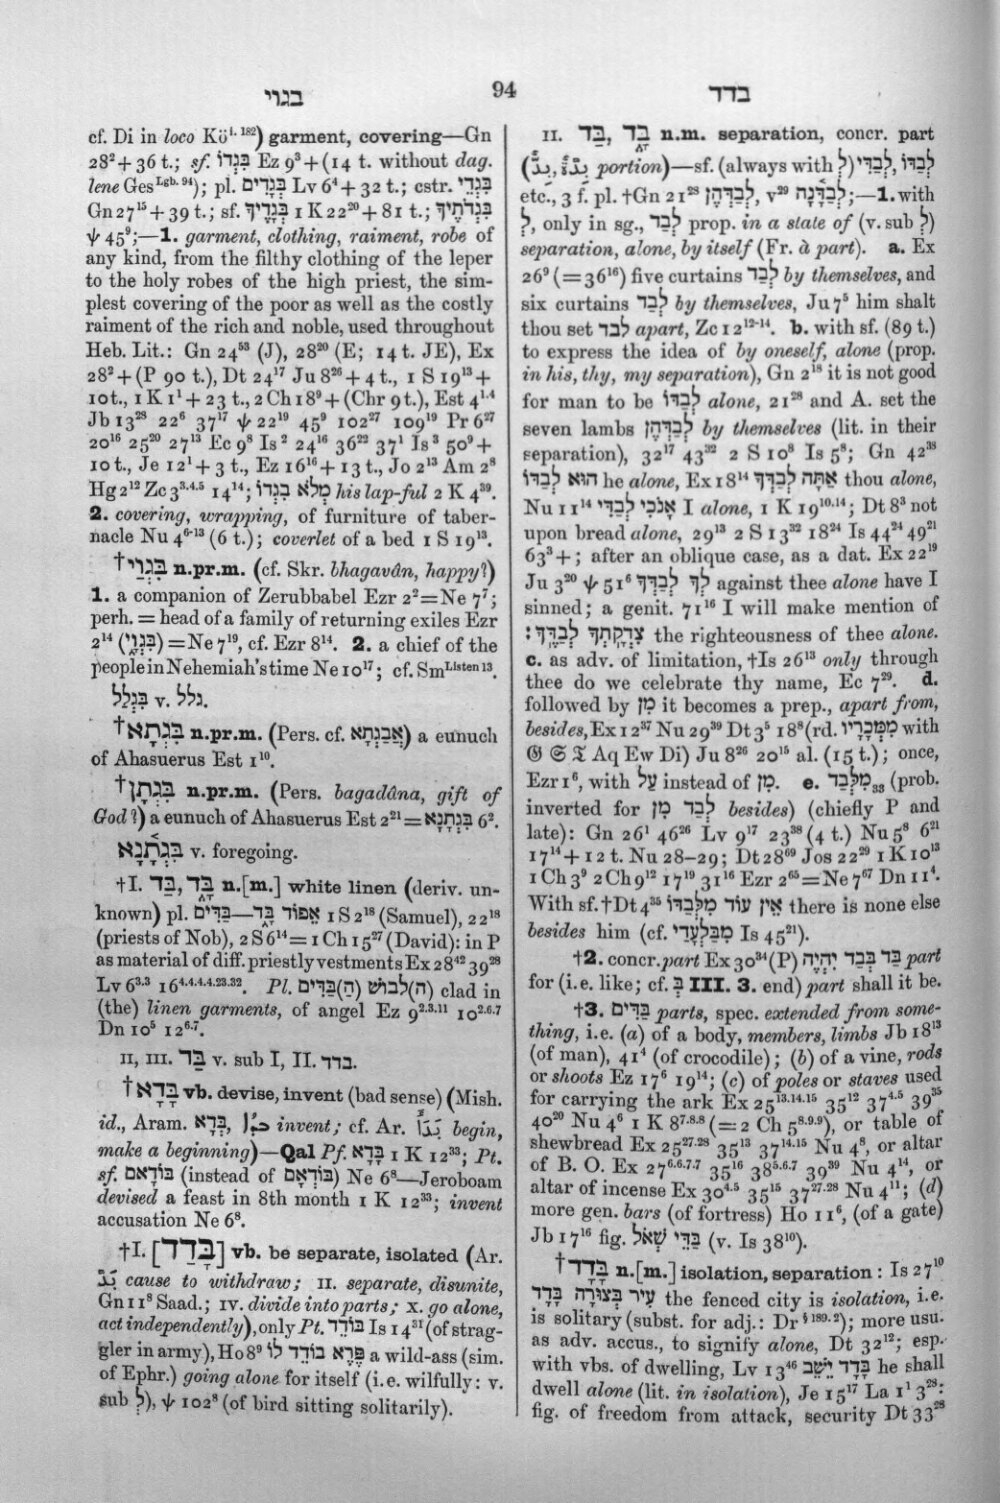 בגוי
94
בדד
cf. Di in loco Köⁱ· ¹⁸²) garment, covering—Gn
28² + 36 t.; sf. בִּגְדוֹ Ez 9³ + (14 t. without dag.
lene Ges Lgb. 94); pl. בְּגָדִים Lv 6⁴ + 32 t.; cstr. בִּגְדֵי
Gn 27¹⁵ + 39 t.; sf. בְּגָדֶיךָ 1 K 22³⁰ + 81 t.; בִּגְדֹתֶיךָ
ψ 45⁹;—1. garment, clothing, raiment, robe of
any kind, from the filthy clothing of the leper
to the holy robes of the high priest, the sim-
plest covering of the poor as well as the costly
raiment of the rich and noble, used throughout
Heb. Lit.: Gn 24⁵³ (J), 28²⁰ (E; 14 t. JE), Ex
28² + (P 90 t.), Dt 24¹⁷ Ju 8²⁶ + 4 t., 1 S 19¹³ +
10 t., 1 K 1¹ + 23 t., 2 Ch 18⁹ + (Chr 9 t.), Est 4¹·⁴
Jb 13²⁸ 22⁶ 37¹⁷ ψ 22¹⁹ 45⁹ 102²⁷ 109¹⁹ Pr 6²⁷
20¹⁶ 25²⁰ 27¹³ Ec 9⁸ Is ² 24¹⁶ 36²² 37¹ Is ³ 50⁹ +
10 t., Je 12¹ + 3 t., Ez 16¹⁶ + 13 t., Jo 2¹³ Am 2⁸
Hg 2¹² Zc 3³·⁴·⁵ 14¹⁴; מְלֹא בִגְדוֹ his lap-ful 2 K 4³⁹.
2. covering, wrapping, of furniture of taber-
nacle Nu 4⁶⁻¹³ (6 t.); coverlet of a bed 1 S 19¹³.
†בִּגְוַי n.pr.m. (cf. Skr. bhagavân, happy?)
1. a companion of Zerubbabel Ezr 2² = Ne 7⁷;
perh. = head of a family of returning exiles Ezr
2¹⁴ (בִּגְוָי) = Ne 7¹⁹, cf. Ezr 8¹⁴. 2. a chief of the
people in Nehemiah's time Ne 10¹⁷; cf. Sm Listen 13.
בִּגְלַל v. גלל.
†בִּגְתָא n.pr.m. (Pers. cf. אֲבַגְתָא) a eunuch
of Ahasuerus Est 1¹⁰.
†בִּגְתָן n.pr.m. (Pers. bagadâna, gift of
God?) a eunuch of Ahasuerus Est 2²¹ = בִּגְתָנָא 6².
בִּגְתָנָא v. foregoing.
†I. בַּד, בָּד n.[m.] white linen (deriv. un-
known) pl. בַּדִּים—אֵפוֹד בָּד 1 S 2¹⁸ (Samuel), 22¹⁸
(priests of Nob), 2 S 6¹⁴ = 1 Ch 15²⁷ (David): in P
as material of diff. priestly vestments Ex 28⁴² 39²⁸
Lv 6³·³ 16⁴·⁴·⁴·⁴·²³·³². Pl. (הַ)לבוּשׁ (הַ)בַּדִּים clad in
(the) linen garments, of angel Ez 9²·³·¹¹ 10²·⁶·⁷
Dn 10⁵ 12⁶·⁷.
II, III. בַּד v. sub I, II. בדד.
†בָּדָא vb. devise, invent (bad sense) (Mish.
id., Aram. בְּדָא, invent; cf. Ar. begin,
make a beginning)—Qal Pf. בָּדָא 1 K 12³³; Pt.
sf. בּוֹדָאם (instead of בּוֹדְאָם) Ne 6⁸—Jeroboam
devised a feast in 8th month 1 K 12³³; invent
accusation Ne 6⁸.
†I. [בָּדַד] vb. be separate, isolated (Ar.
بَدَّ cause to withdraw; II. separate, disunite,
Gn 11⁸ Saad.; IV. divide into parts; X. go alone,
act independently), only Pt. בּוֹדֵד Is 14³¹ (of strag-
gler in army), Ho 8⁹ פֶּרֶא בוֹדֵד לוֹ a wild-ass (sim.
of Ephr.) going alone for itself (i.e. wilfully: v.
sub לְ), ψ 102⁸ (of bird sitting solitarily).
II. בַּד, בָּד n.m. separation, concr. part
(portion)—sf. (always with לְ) לְבַדִּי, לְבַדּוֹ
etc., 3 f. pl. †Gn 21²⁸ לְבַדְּהֶן, v²⁹ לְבַדָּנָה;—1. with
לְ, only in sg., לְבַד prop. in a state of (v. sub לְ)
separation, alone, by itself (Fr. à part). a. Ex
26⁹ (= 36¹⁶) five curtains לְבַד by themselves, and
six curtains לְבַד by themselves, Ju 7⁵ him shalt
thou set לבד apart, Zc 12¹²⁻¹⁴. b. with sf. (89 t.)
to express the idea of by oneself, alone (prop.
in his, thy, my separation), Gn 2¹⁸ it is not good
for man to be לְבַדּוֹ alone, 21²⁸ and A. set the
seven lambs לְבַדְּהֶן by themselves (lit. in their
separation), 32¹⁷ 43³² 2 S 10⁸ Is 5⁸; Gn 42³⁸
הוּא לְבַדּוֹ he alone, Ex 18¹⁴ אַתָּה לְבַדֶּךָ thou alone,
Nu 11¹⁴ אָנֹכִי לְבַדִּי I alone, 1 K 19¹⁰·¹⁴; Dt 8³ not
upon bread alone, 29¹³ 2 S 13³² 18²⁴ Is 44²⁴ 49²¹
63³ +; after an oblique case, as a dat. Ex 22¹⁹
Ju 3²⁰ ψ 51⁶ לְךָ לְבַדְּךָ against thee alone have I
sinned; a genit. 71¹⁶ I will make mention of
צִדְקָתְךָ לְבַדֶּךָ׃ the righteousness of thee alone.
c. as adv. of limitation, †Is 26¹³ only through
thee do we celebrate thy name, Ec 7²⁹. d.
followed by מִן it becomes a prep., apart from,
besides, Ex 12³⁷ Nu 29³⁹ Dt 3⁵ 18⁸ (rd. מִמְּכָרָיו with
𝔊 𝔖 𝔗 Aq Ew Di) Ju 8²⁶ 20¹⁵ al. (15 t.); once,
Ezr 1⁶, with עַל instead of מִן. e. מִלְּבַד₃₃ (prob.
inverted for לְבַד מִן besides) (chiefly P and
late): Gn 26¹ 46²⁶ Lv 9¹⁷ 23³⁸ (4 t.) Nu 5⁸ 6²¹
17¹⁴ + 12 t. Nu 28–29; Dt 28⁶⁹ Jos 22²⁹ 1 K 10¹³
1 Ch 3⁹ 2 Ch 9¹² 17¹⁹ 31¹⁶ Ezr 2⁶⁵ = Ne 7⁶⁷ Dn 11⁴.
With sf. †Dt 4³⁵ אֵין עוֹד מִלְּבַדּוֹ there is none else
besides him (cf. מִבַּלְעָדַי Is 45²¹).
†2. concr. part Ex 30³⁴ (P) בַּד בְּבַד יִהְיֶה part
for (i.e. like; cf. בְּ III. 3. end) part shall it be.
†3. בַּדִּים parts, spec. extended from some-
thing, i.e. (a) of a body, members, limbs Jb 18¹³
(of man), 41⁴ (of crocodile); (b) of a vine, rods
or shoots Ez 17⁶ 19¹⁴; (c) of poles or staves used
for carrying the ark Ex 25¹³·¹⁴·¹⁵ 35¹² 37⁴·⁵ 39³⁵
40²⁰ Nu 4⁶ 1 K 8⁷·⁸·⁸ (= 2 Ch 5⁸·⁹·⁹), or table of
shewbread Ex 25²⁷·²⁸ 35¹³ 37¹⁴·¹⁵ Nu 4⁸, or altar
of B. O. Ex 27⁶·⁶·⁷·⁷ 35¹⁶ 38⁵·⁶·⁷ 39³⁹ Nu 4¹⁴, or
altar of incense Ex 30⁴·⁵ 35¹⁵ 37²⁷·²⁸ Nu 4¹¹; (d)
more gen. bars (of fortress) Ho 11⁶, (of a gate)
Jb 17¹⁶ fig. בַּדֵּי שְׁאֹל (v. Is 38¹⁰).
†בָּדָד n.[m.] isolation, separation: Is 27¹⁰
עִיר בְּצוּרָה בָּדָד the fenced city is isolation, i.e.
is solitary (subst. for adj.: Dr § 189. 2); more usu.
as adv. accus., to signify alone, Dt 32¹²; esp.
with vbs. of dwelling, Lv 13⁴⁶ בָּדָד יֵשֵׁב he shall
dwell alone (lit. in isolation), Je 15¹⁷ La 1¹ 3²⁸:
fig. of freedom from attack, security Dt 33²⁸